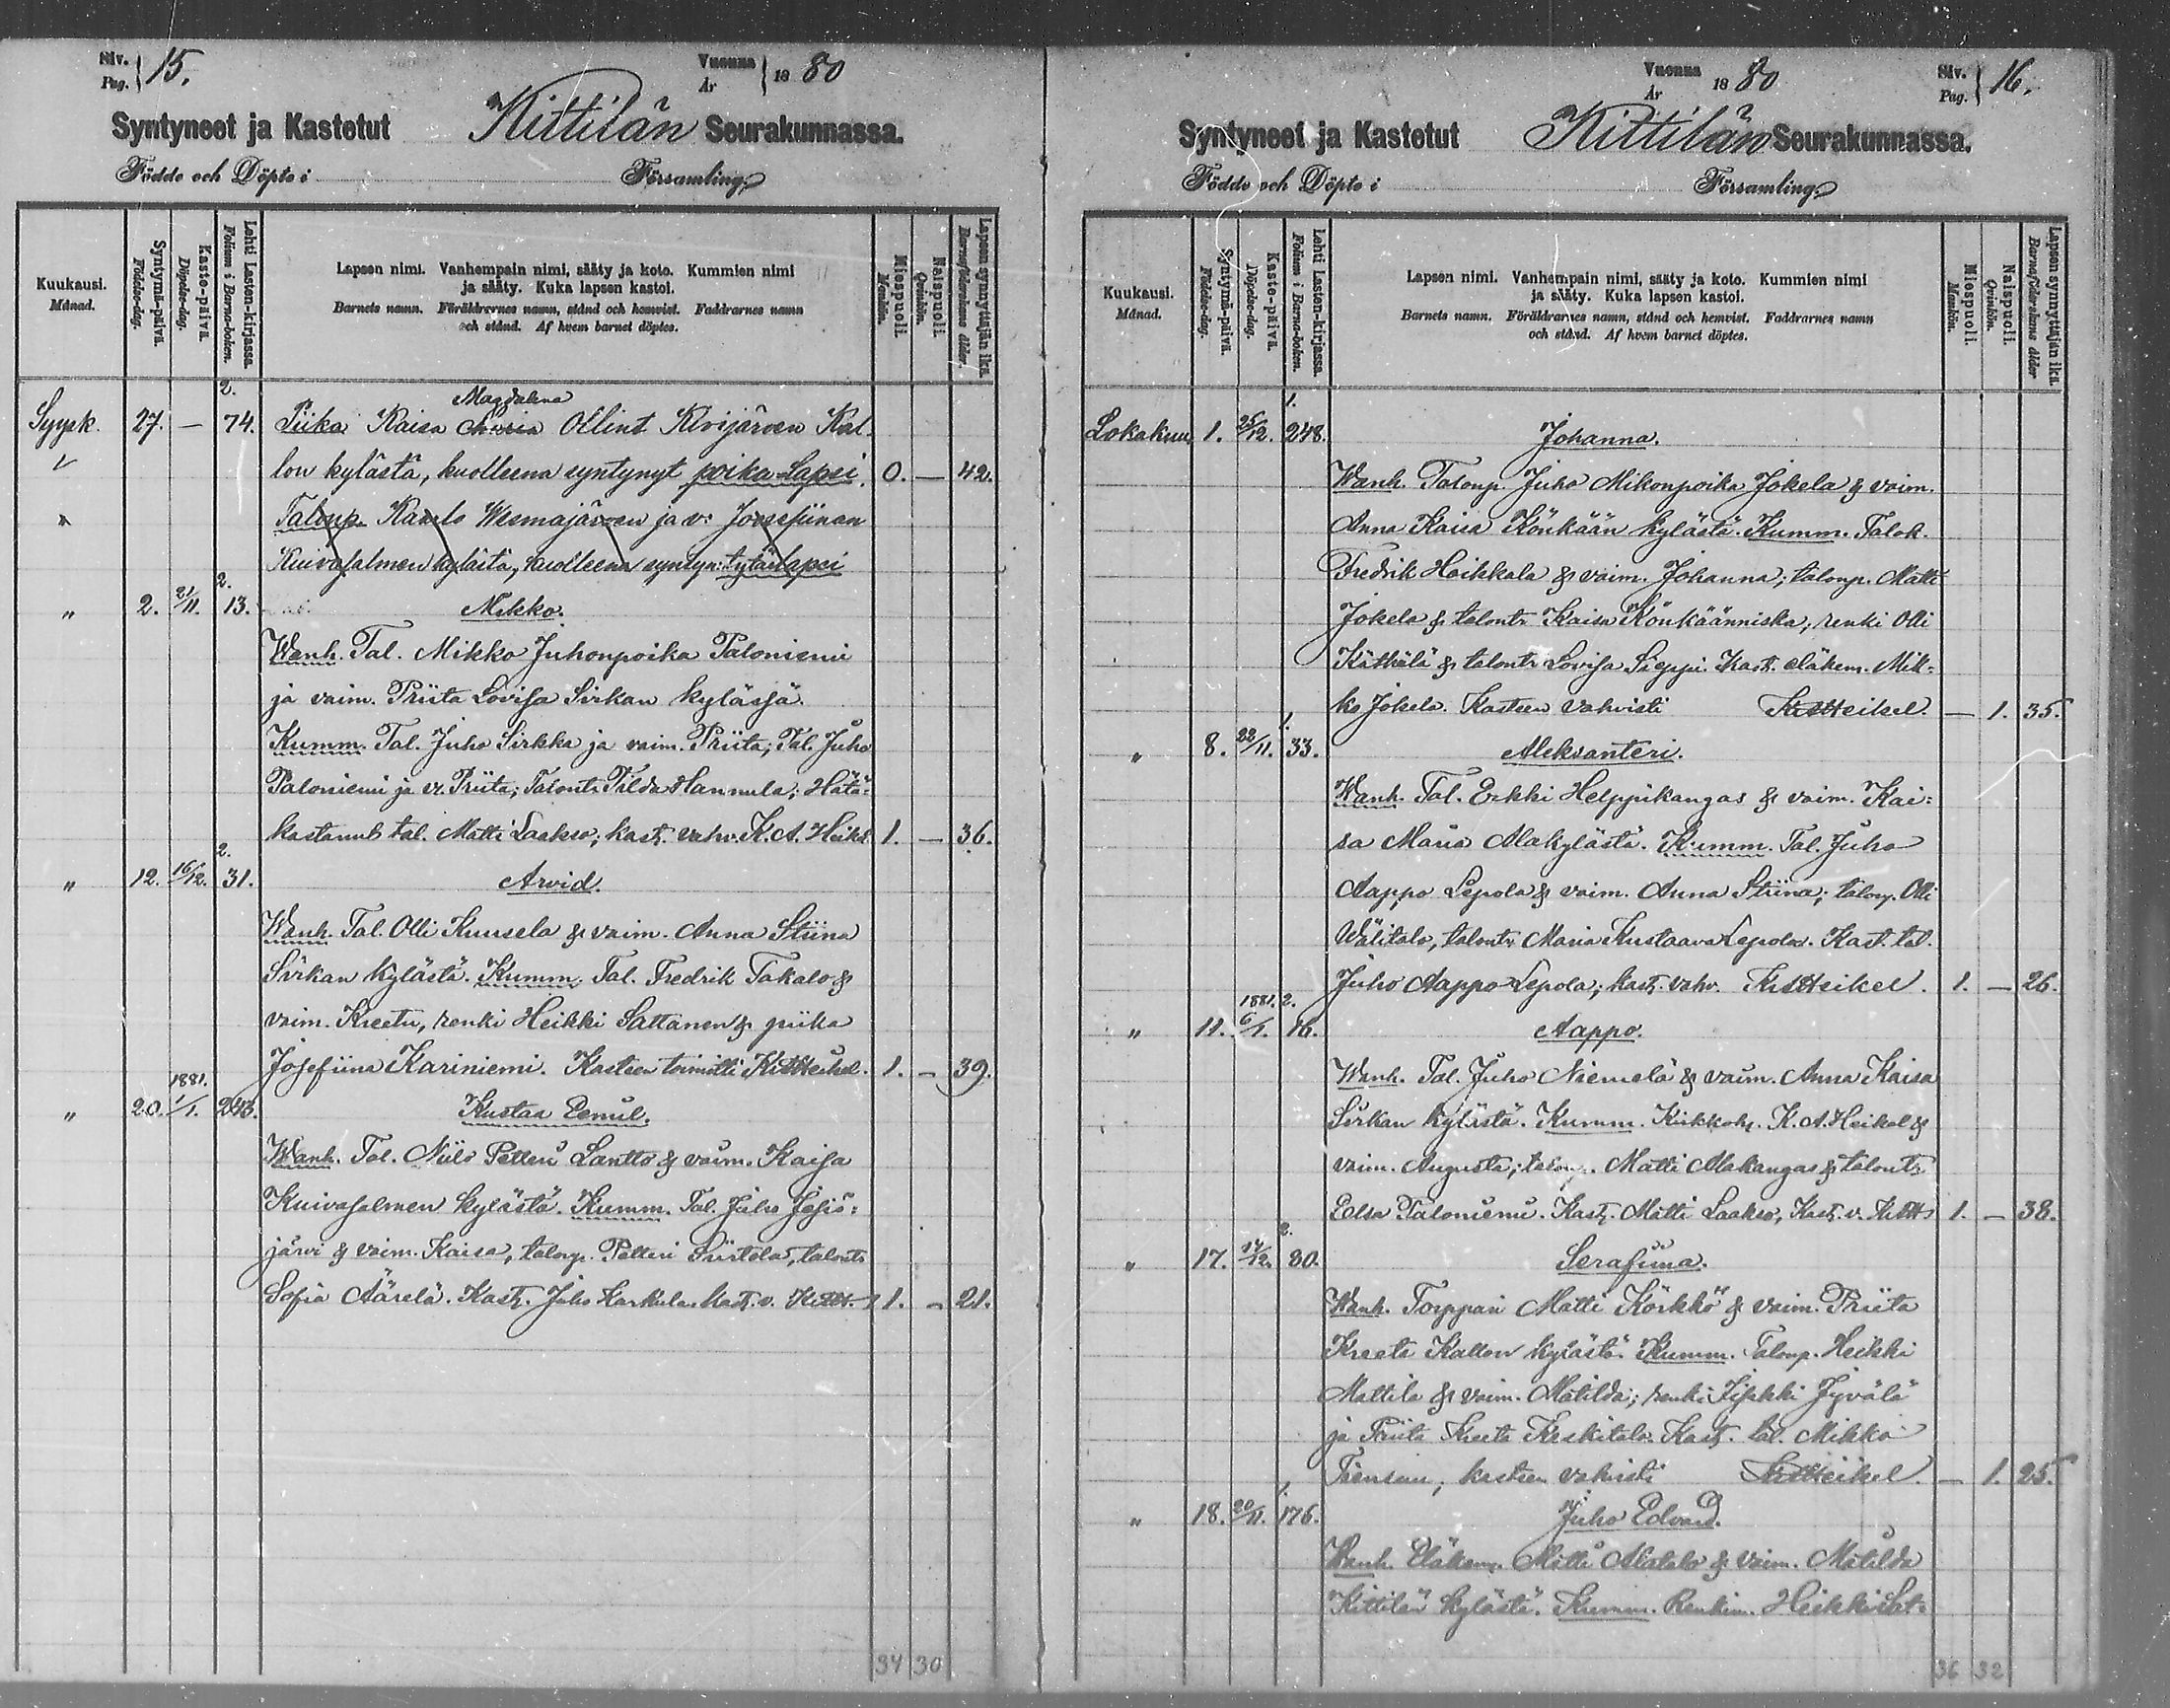 Siv. Pag. } 15. Vuonna År } 1880
Syntyneet ja Kastetut Kittilän Seurakunnassa.
Födde och Döpte i Församling.
Kuukausi. Månad.
Syntymä-päivä. Födelse-dag.
Kaste-päivä. Döpelse-dag.
Lehti Lasten-kirjassa. Folium i Barna-boken.
Lapsen nimi. Vanhempain nimi, sääty ja koto. Kummien nimi
ja sääty. Kuka lapsen kastoi.
Barnets namn. Föräldrarnes namn, stånd och hemvist. Faddrarnes namn
och stånd. Af hvem barnet döptes.
Miespuoli. Mankön.
Naispuoli. Qvinkön.
Lapsen synnyttäjän ikä. Barnaföderskans ålder.
2. Magdalena
Syysk. 27. — 74. Piika Kaisa Maria Ollint. Kivijärven Kal-
lon kylästä, kuolleena syntynyt poika Lapsi. 0. — 42.
Talonp. Kaarlo Wesmajärven ja v: Josefiinan
Kuivasalmen kylästä, kuolleena syntyn: tytärlapsi
2.
" 2. 21/11. 13. Mikko.
Wanh. Tal. Mikko Juhonpoika Paloniemi
ja vaim. Priita Lovisa Sirkan kylässä.
Kumm. Tal. Juho Sirkka ja vaim. Priita; Tal. Juho
Paloniemi ja v. Priita; Talontr. Tilda Hannula; Hätä-
kastanut tal. Matti Laakso; kast. vahv. K. A. Heikel 1. — 36.
2.
" 12. 16/12. 31. Arvid.
Wanh. Tal. Olli Kuusela & vaim. Anna Stiina
Sirkan kylästä. Kumm. Tal. Fredrik Takalo &
vaim. Kreetu, renki Heikki Sattanen & piika
Josefiina Kariniemi. Kasteen toimitti KAHeikel. 1. — 39.
1881.
" 20. 1/1. 243. Kustaa Eemil.
Wanh. Tal. Niilo Petteri Lantto & vaim. Kaisa
Kuivasalmen kylästä. Kumm. Tal. Juho Jesiö-
järvi & vaim. Kaisa, talonp. Petteri Siirtola, talontr.
Sofia Äärelä. Kast. Juho Harkula. kast. v. KAH. 1. — 21.
34 30
Vuonna År 1880 Siv. Pag. } 16.
Syntyneet ja Kastetut Kittilän Seurakunnassa.
Födde och Döpte i Församling.
Kuukausi. Månad.
Syntymä-päivä. Födelse-dag.
Kaste-päivä. Döpelse-dag.
Lehti Lasten-kirjassa. Folium i Barna-boken.
Lapsen nimi. Vanhempain nimi, sääty ja koto. Kummien nimi
ja sääty. Kuka lapsen kastoi.
Barnets namn. Föräldrarnes namn, stånd och hemvist. Faddrarnes namn
och stånd. Af hvem barnet döptes.
Miespuoli. Mankön.
Naispuoli. Qvinkön.
Lapsen synnyttäjän ikä. Barnaföderskans ålder
1.
Lokakuu 1. 25/12. 248. Johanna.
Wanh. Talonp. Juho Mikonpoika Jokela & vaim.
Anna Kaisa Könkään kylästä. Kumm. Talok.
Fredrik Heikkala & vaim. Johanna; talonp. Matti
Jokela & talontr. Kaisa Könkäänniska, renki Olli
Kätkälä & talontr. Lovisa Sieppi. Kast. eläkem. Mik-
ko Jokela. Kasteen vahvisti KAHeikel. — 1. 35.
1.
" 8. 22/11. 33. Aleksanteri.
Wanh. Tal. Erkki Helppikangas & vaim. Kai-
sa Maria Alakylästä. Kumm. Tal. Juho
Aappo Lepola & vaim. Anna Stiina; talonp. Olli
Wälitalo, talontr. Maria Kustaava Lepola. Kast. tal.
Juho Aappo Lepola; kast. vahv. KAHeikel. 1. — 26.
1881. 2.
" 11. 6/1. 16. Aappo.
Wanh. Tal. Juho Niemelä & vaim. Anna Kaisa
Sirkan kylästä. Kumm. Kirkkoh. K. A. Heikel &
vaim. Augusta; talonp. Matti Alakangas & talontr.
Eelsa Paloniemi. Kast. Matti Laakso, Kast. v. KAH 1. — 38.
2.
" 17. 17/12. 80. Serafiina.
Wanh. Torppari Matti Körkkö & vaim. Priita
Kreeta Kallon kylästä. Kumm. Talonp. Heikki
Mattila & vaim. Matilda; renki Iisakki Jyvälä
ja Priita Kreeta Keskitalo. Kast. tal. Mikko
Tiensuu, kasteen vahvisti KAHeikel. — 1. 25.
1.
" 18. 20/11. 176. Juho Edvard.
Wanh. Eläkem. Matti Alatalo & vaim. Matilda
Kittilän kylästä. Kumm. Renkim. Heikki Sat-
36 32